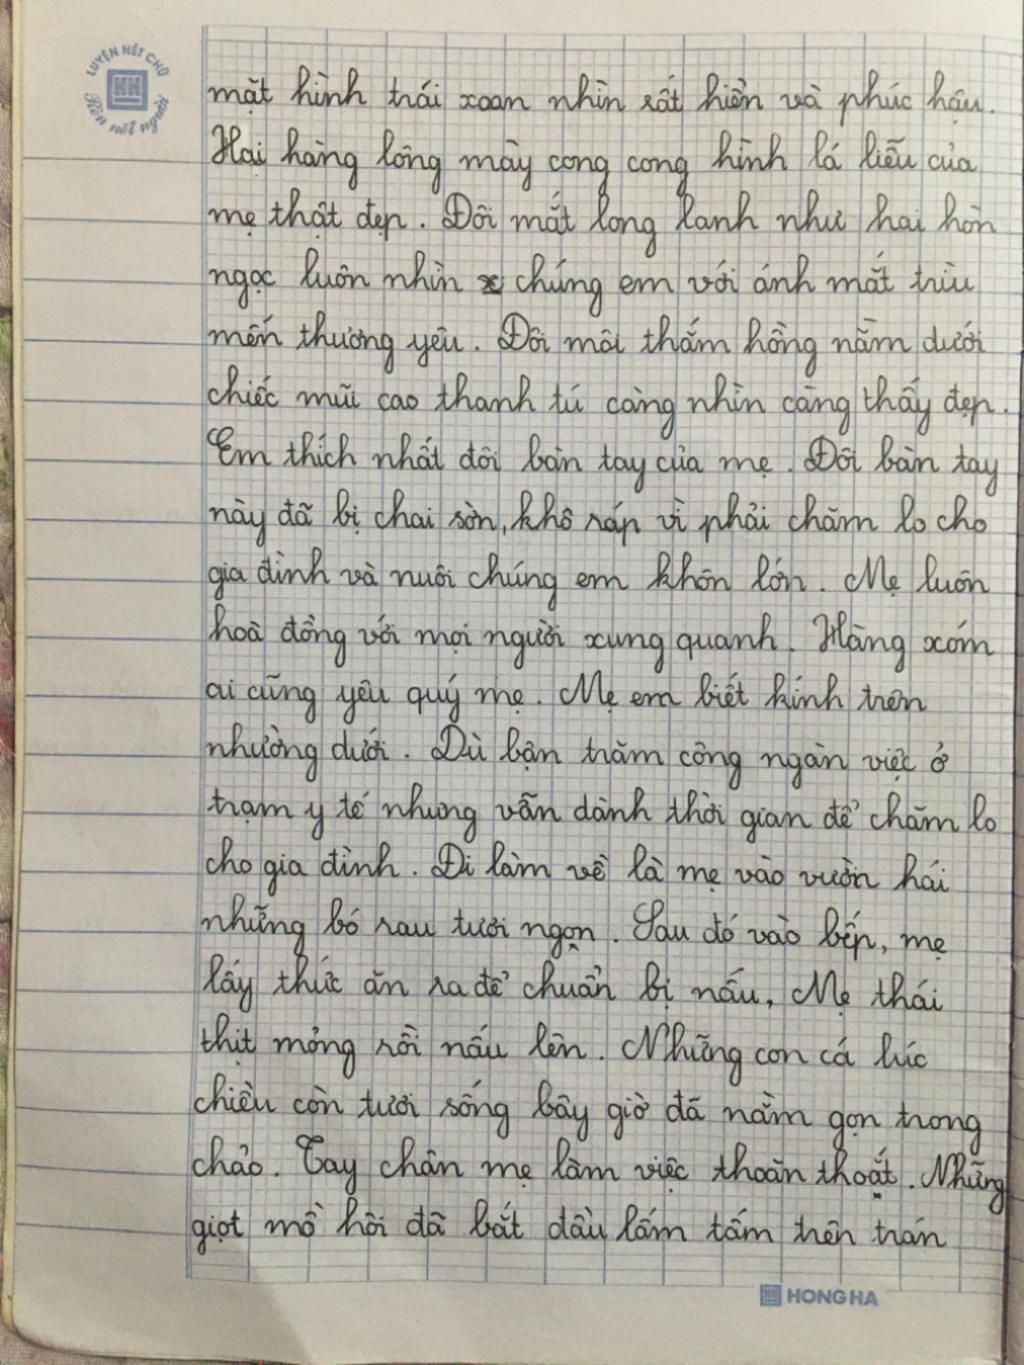 LUYỆN NÉT CHỮ
Rèn nết người
mặt hình trái xoan nhìn rất hiền và phúc hậu.
Hai hàng lông mày cong cong hình lá liễu của
mẹ thật đẹp. Đôi mắt long lanh như hai hòn
ngọc luôn nhìn chúng em với ánh mắt trìu
mến thương yêu. Đôi môi thắm hồng nằm dưới
chiếc mũi cao thanh tú càng nhìn càng thấy đẹp.
Em thích nhất đôi bàn tay của mẹ. Đôi bàn tay
này đã bị chai sờn, khô ráp vì phải chăm lo cho
gia đình và nuôi chúng em khôn lớn. Mẹ luôn
hoà đồng với mọi người xung quanh. Hàng xóm
ai cũng yêu quý mẹ. Mẹ em biết kính trên
nhường dưới. Dù bận trăm công ngàn việc ở
trạm y tế nhưng vẫn dành thời gian để chăm lo
cho gia đình. Đi làm về là mẹ vào vườn hái
những bó rau tươi ngọn. Sau đó vào bếp, mẹ
lấy thức ăn ra để chuẩn bị nấu, Mẹ thái
thịt mỏng rồi nấu lên. Những con cá lúc
chiều còn tươi sống bây giờ đã nằm gọn trong
chảo. Tay chân mẹ làm việc thoăn thoắt. Những
giọt mồ hôi đã bắt đầu lấm tấm trên trán
HONG HA